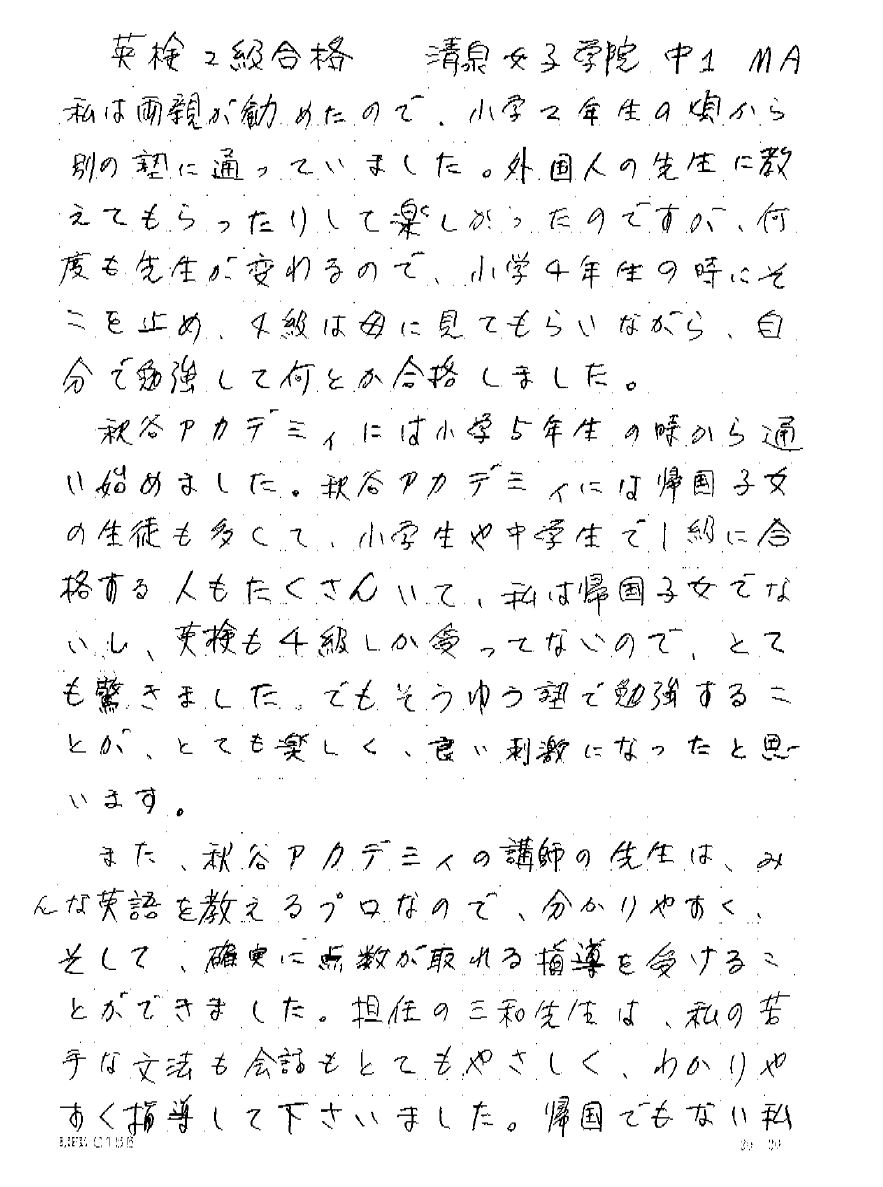 英検2級合格　清泉女子学院 中1 MA
私は両親が勧めたので、小学2年生の頃から
別の塾に通っていました。外国人の先生に教
えてもらったりして楽しかったのですが、何
度も先生が変わるので、小学4年生の時にそ
こを止め、4級は母に見てもらいながら、自
分で勉強して何とか合格しました。
秋谷アカデミィには小学5年生の時から通
い始めました。秋谷アカデミィには帰国子女
の生徒も多くて、小学生や中学生で1級に合
格する人もたくさんいて、私は帰国子女でな
いし、英検も4級しか受ってないので、とて
も驚きました。でもそうゆう塾で勉強するこ
とが、とても楽しく、良い刺激になったと思
います。
また、秋谷アカデミィの講師の先生は、み
んな英語を教えるプロなので、分かりやすく、
そして、確実に点数が取れる指導を受けるこ
とができました。担任の三和先生は、私の苦
手な文法も会話もとてもやさしく、わかりや
すく指導して下さいました。帰国でもない私
LIFE C155
20 20